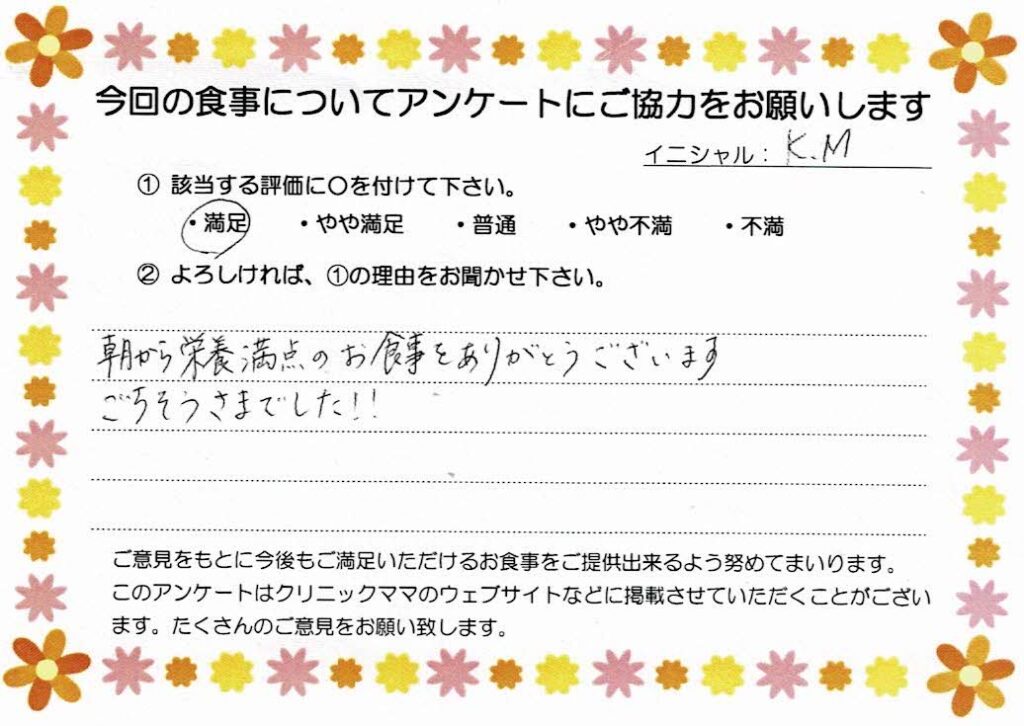 今回の食事についてアンケートにご協力をお願いします
イニシャル： K.M
① 該当する評価に〇を付けて下さい。
・満足 ・やや満足 ・普通 ・やや不満 ・不満
② よろしければ、①の理由をお聞かせ下さい。
朝から栄養満点のお食事をありがとうございます
ごちそうさまでした!!
ご意見をもとに今後もご満足いただけるお食事をご提供出来るよう努めてまいります。
このアンケートはクリニックママのウェブサイトなどに掲載させていただくことがござい
ます。たくさんのご意見をお願い致します。